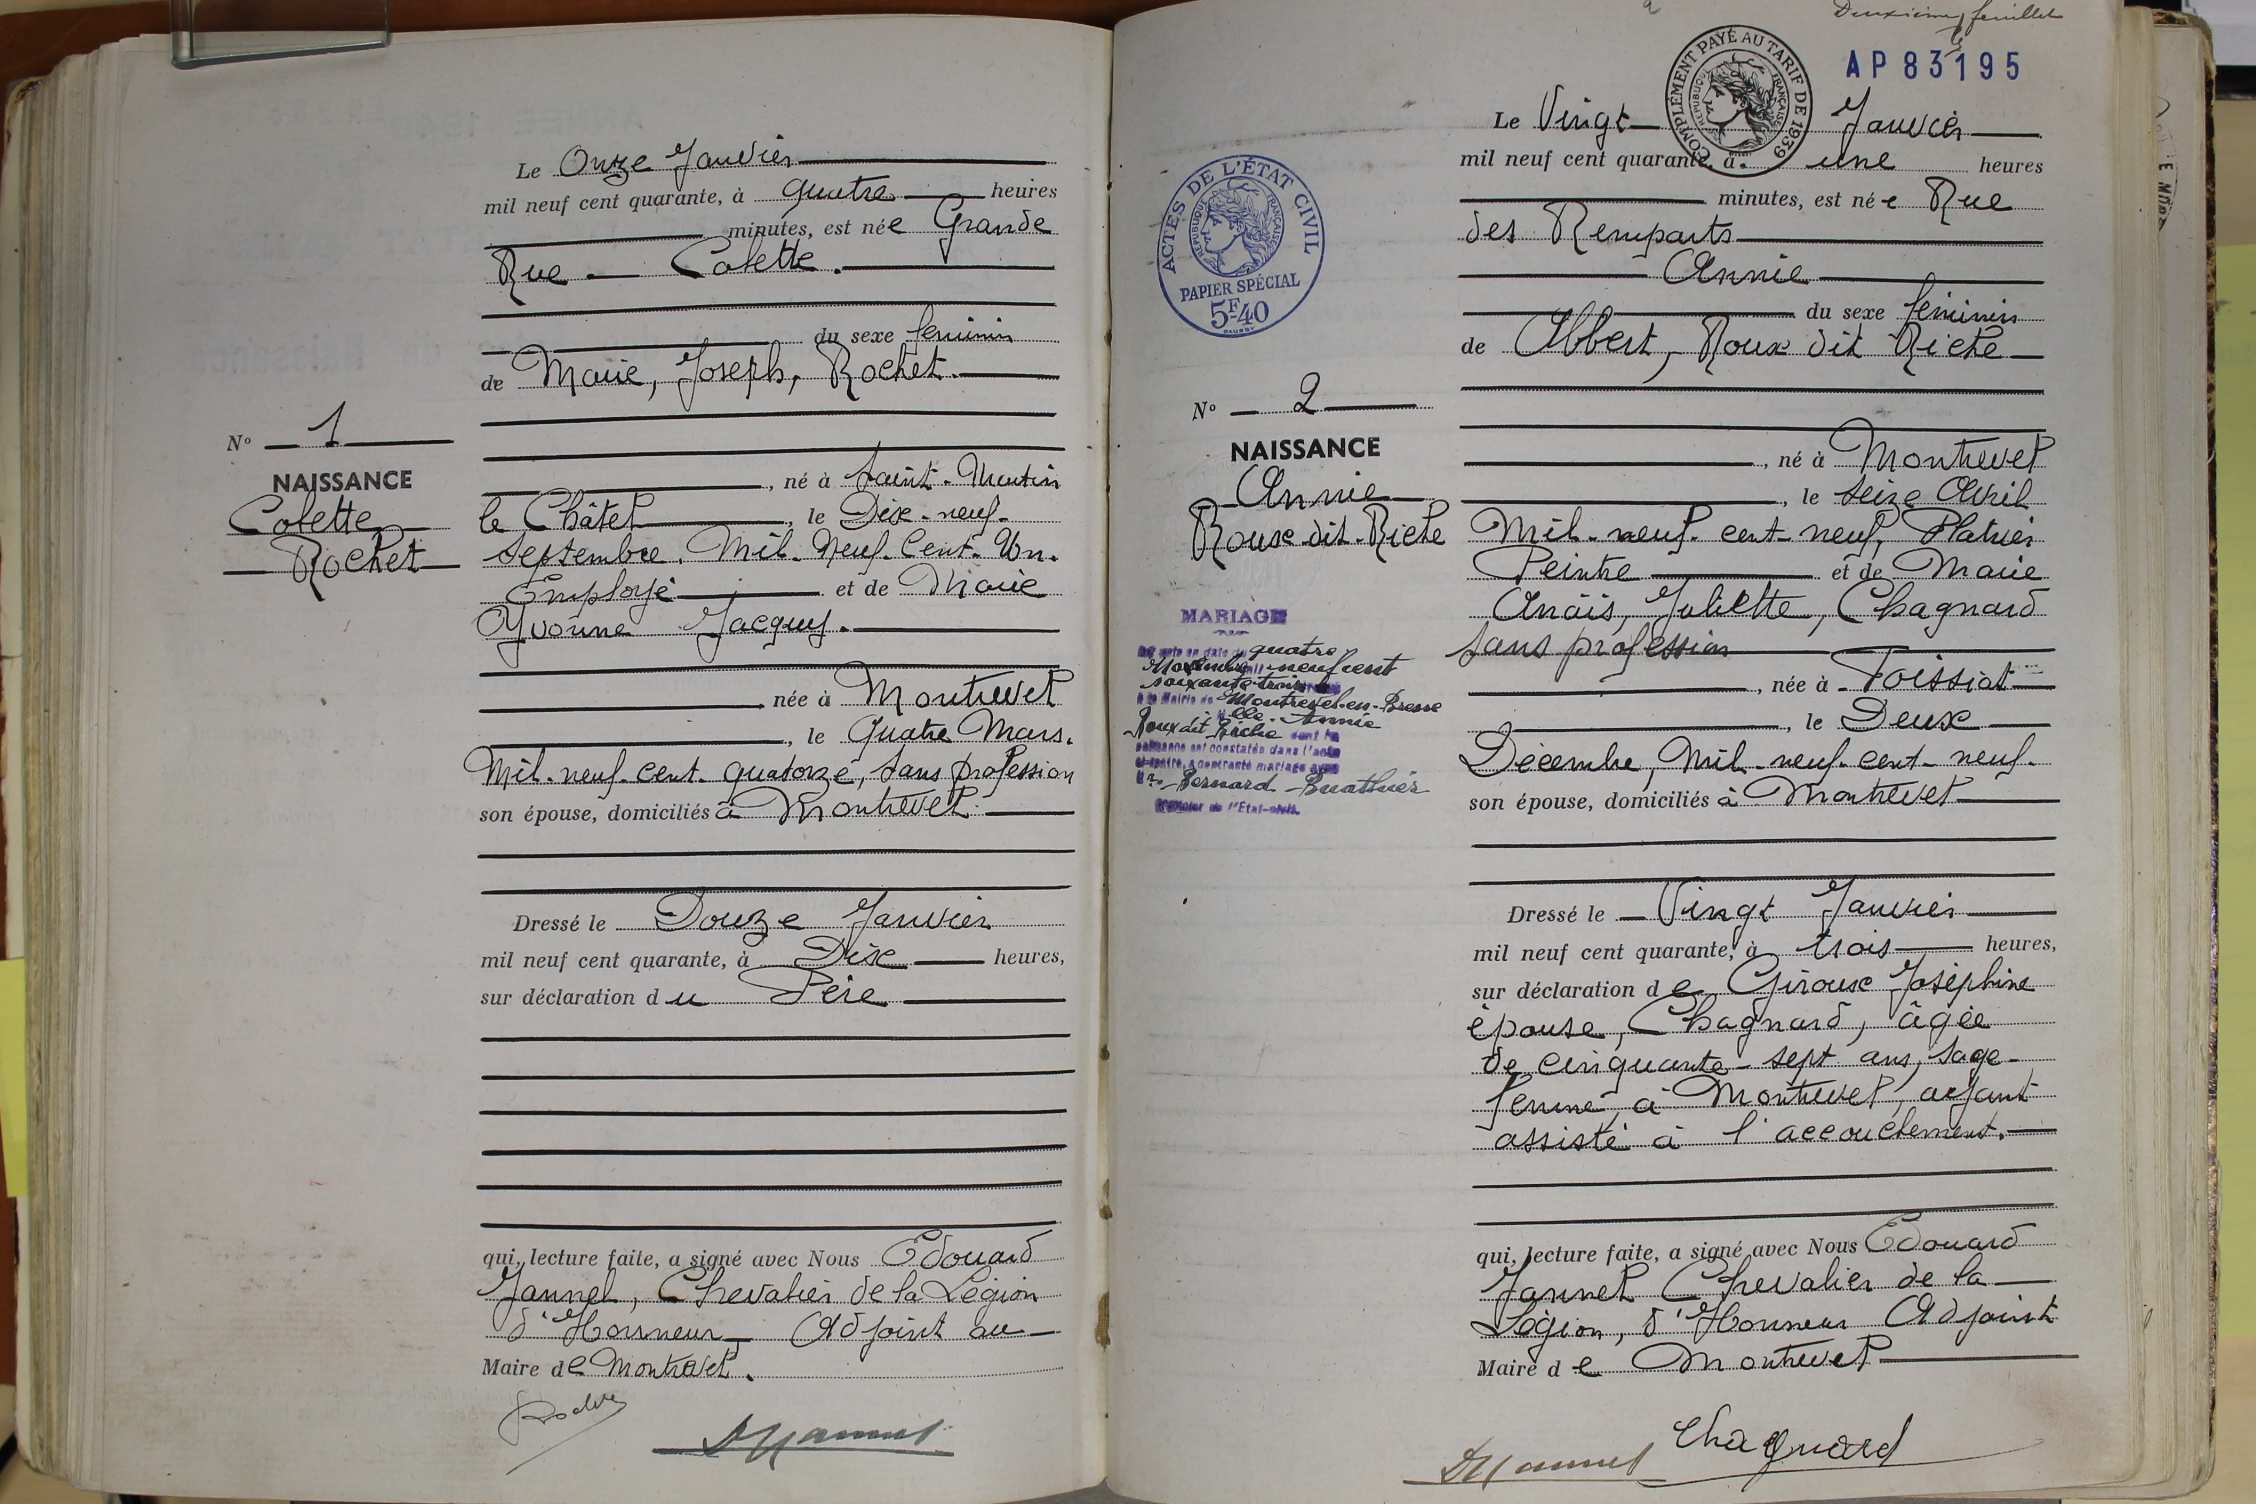 Le Onze Janvier
mil neuf cent quarante, à quatre heures
minutes, est née Grande
Rue Colette.
du sexe feminin
de Marie, Joseph, Rochet.
N° 1
NAISSANCE
Colette
Rochet
, né à Saint-Martin
le Châtel, le Dix-neuf
Septembre. Mil-Neuf-Cent-Un.
Employé et de Marie
Yvonne Jacquy.
née à Montrevel
, le Quatre Mars.
Mil-neuf-cent-quatorze, sans profession
son épouse, domiciliés à Montrevel
Dressé le Douze Janvier
mil neuf cent quarante, à Dix heures,
sur déclaration du Père
qui, lecture faite, a signé avec Nous Edouard
Jannel, Chevalier de la Légion
d'Honneur, Adjoint au
Maire de Montrevel.
Deuxième feuillet
AP 83195
COMPLÉMENT PAYÉ AU TARIF DE 1939
RÉPUBLIQUE FRANÇAISE
Le Vingt Janvier
mil neuf cent quarante à une heures
minutes, est née Rue
des Remparts
Annie
du sexe féminin
de Albert, Roux dit Riche
ACTES DE L'ÉTAT CIVIL
RÉPUBLIQUE FRANÇAISE
PAPIER SPÉCIAL
5F40
N° 2
NAISSANCE
Annie
Roux-dit-Riche
MARIAGE
quatre
Novembre mil neuf cent
soixante trois
à la Mairie de Montrevel-en-Bresse
Melle Annie
Roux dit Riche dont la
naissance est constatée dans l'acte
ci-contre, a contracté mariage avec
Mr Bernard Buathier
L'Officier de l'Etat-civil.
, né à Montrevel
, le seize Avril
Mil-neuf-cent-neuf, Platrier
Peintre et de Marie
Anaïs, Juliette, Chagnard
sans profession
, née à Foissiat
, le Deux
Décembre, Mil-neuf-cent-neuf-
son épouse, domiciliés à Montrevel
Dressé le Vingt Janvier
mil neuf cent quarante, à trois heures,
sur déclaration de Giroux Joséphine
épouse, Chagnard, âgée
de cinquante-sept ans, sage-
femme, à Montrevel, ayant
assisté à l'accouchement.
qui, lecture faite, a signé avec Nous Edouard
Jannel Chevalier de la
Légion, d'Honneur Adjoint
Maire de Montrevel
Chagnard